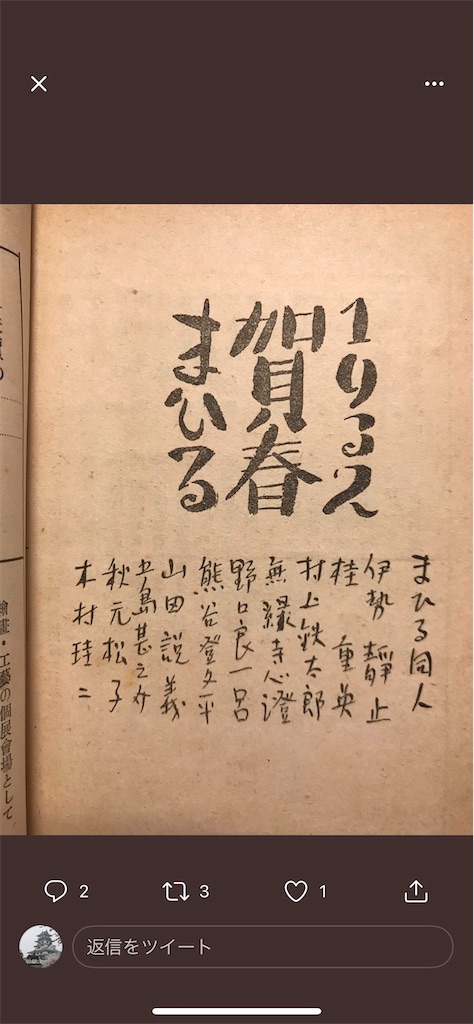 賀春
まひる
まひる同人
伊勢 靜止
桂 重英
村上鉄太郎
無縁寺心澄
野口良一呂
熊谷登久平
山田説義
五島甚之介
秋元松子
木村珪二
繪畫・工藝の個展會場として
2 3 1
返信をツイート